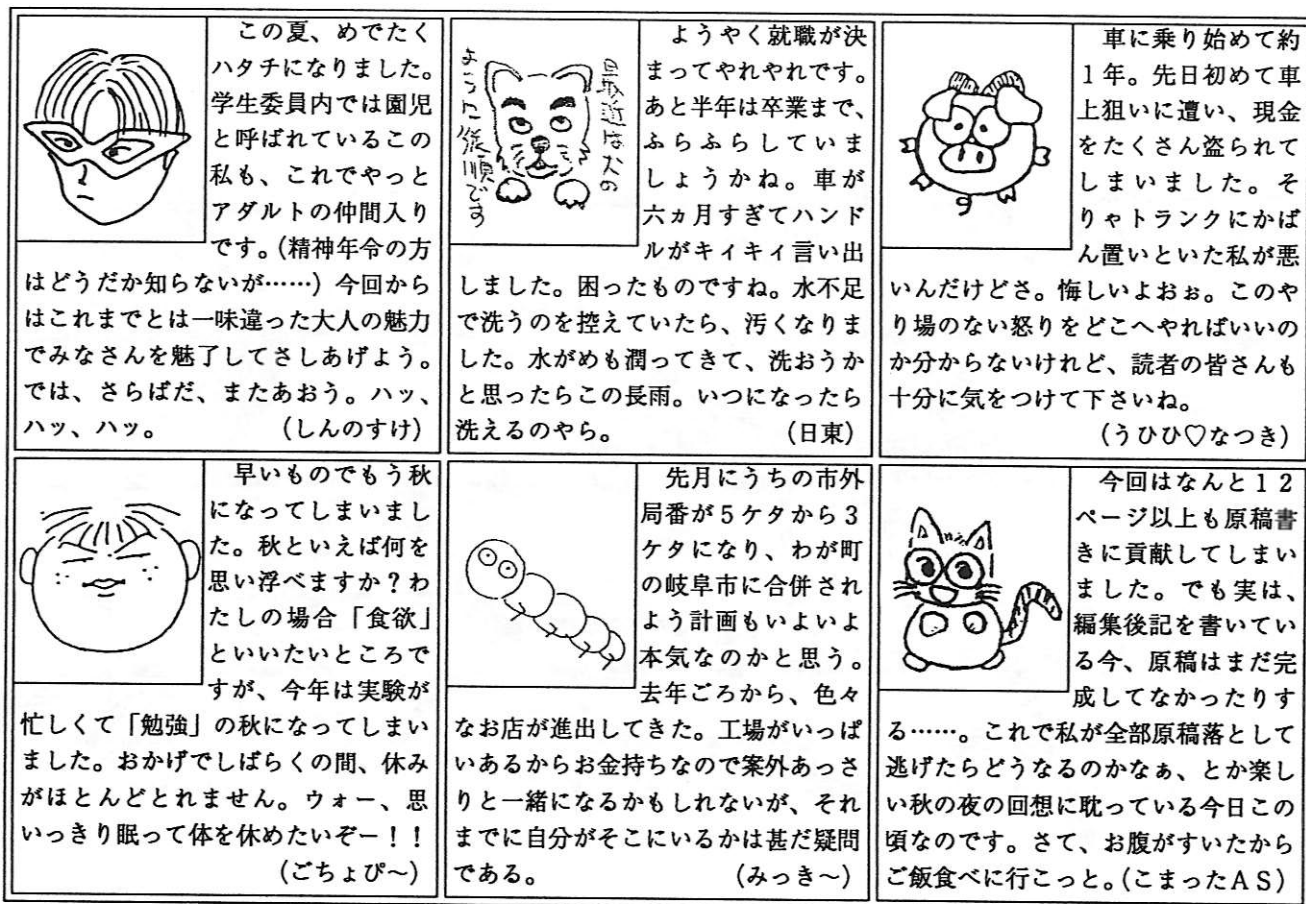 この夏、めでたく
ハタチになりました。
学生委員内では園児
と呼ばれているこの
私も、これでやっと
アダルトの仲間入り
です。(精神年令の方
はどうだか知らないが……)今回から
はこれまでとは一味違った大人の魅力
でみなさんを魅了してさしあげよう。
では、さらばだ、またあおう。ハッ、
ハッ、ハッ。 (しんのすけ)
最近は犬の
ように従順です
ようやく就職が決
まってやれやれです。
あと半年は卒業まで、
ふらふらしていま
しょうかね。車が
六ヵ月すぎてハンド
ルがキイキイ言い出
しました。困ったものですね。水不足
で洗うのを控えていたら、汚くなりま
した。水がめも潤ってきて、洗おうか
と思ったらこの長雨。いつになったら
洗えるのやら。 (日東)
車に乗り始めて約
1年。先日初めて車
上狙いに遭い、現金
をたくさん盗られて
しまいました。そ
りゃトランクにかば
ん置いといた私が悪
いんだけどさ。悔しいよおぉ。このや
り場のない怒りをどこへやればいいの
か分からないけれど、読者の皆さんも
十分に気をつけて下さいね。
(うひひ♡なつき)
早いものでもう秋
になってしまいまし
た。秋といえば何を
思い浮べますか?わ
たしの場合「食欲」
といいたいところで
すが、今年は実験が
忙しくて「勉強」の秋になってしまい
ました。おかげでしばらくの間、休み
がほとんどとれません。ウォー、思
いっきり眠って体を休めたいぞー!!
(ごちょぴ~)
先月にうちの市外
局番が5ケタから3
ケタになり、わが町
の岐阜市に合併され
よう計画もいよいよ
本気なのかと思う。
去年ごろから、色々
なお店が進出してきた。工場がいっぱ
いあるからお金持ちなので案外あっさ
りと一緒になるかもしれないが、それ
までに自分がそこにいるかは甚だ疑問
である。 (みっき~)
今回はなんと12
ページ以上も原稿書
きに貢献してしまい
ました。でも実は、
編集後記を書いてい
る今、原稿はまだ完
成してなかったりす
る……。これで私が全部原稿落として
逃げたらどうなるのかなぁ、とか楽し
い秋の夜の回想に耽っている今日この
頃なのです。さて、お腹がすいたから
ご飯食べに行こっと。(こまったAS)